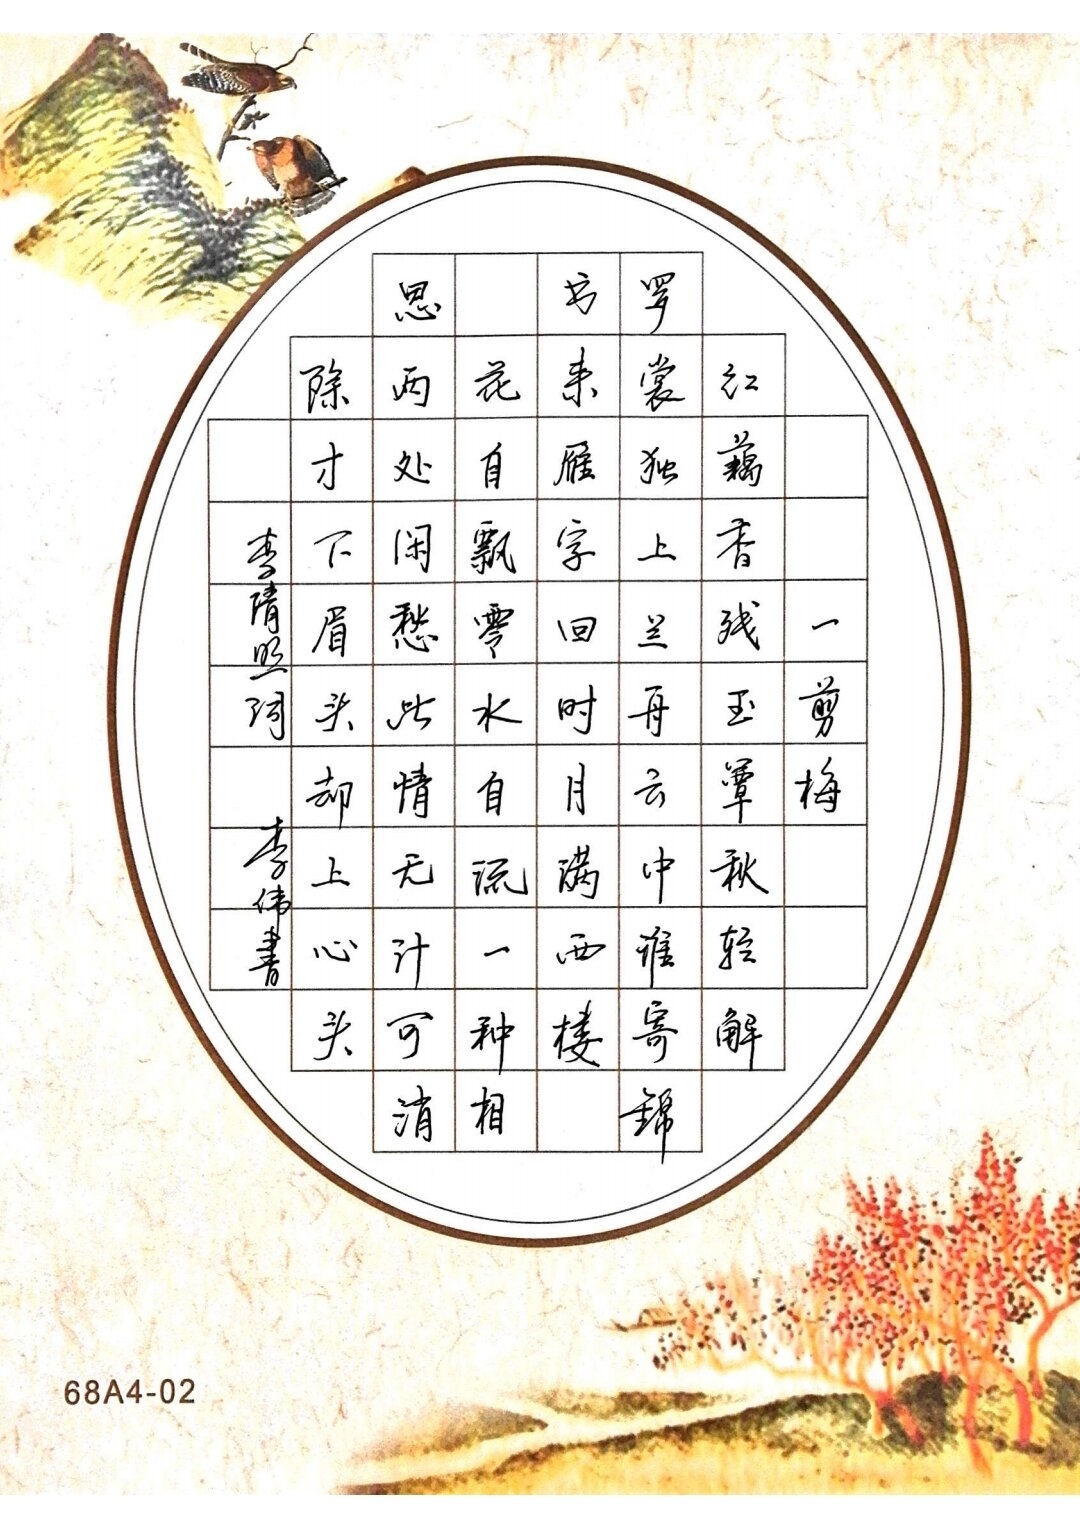 一剪梅
红藕香残玉簟秋轻解
罗裳独上兰舟云中谁寄锦
书来雁字回时月满西楼
花自飘零水自流一种相
思两处闲愁此情无计可消
除才下眉头却上心头
李清照词 李伟书
68A4-02